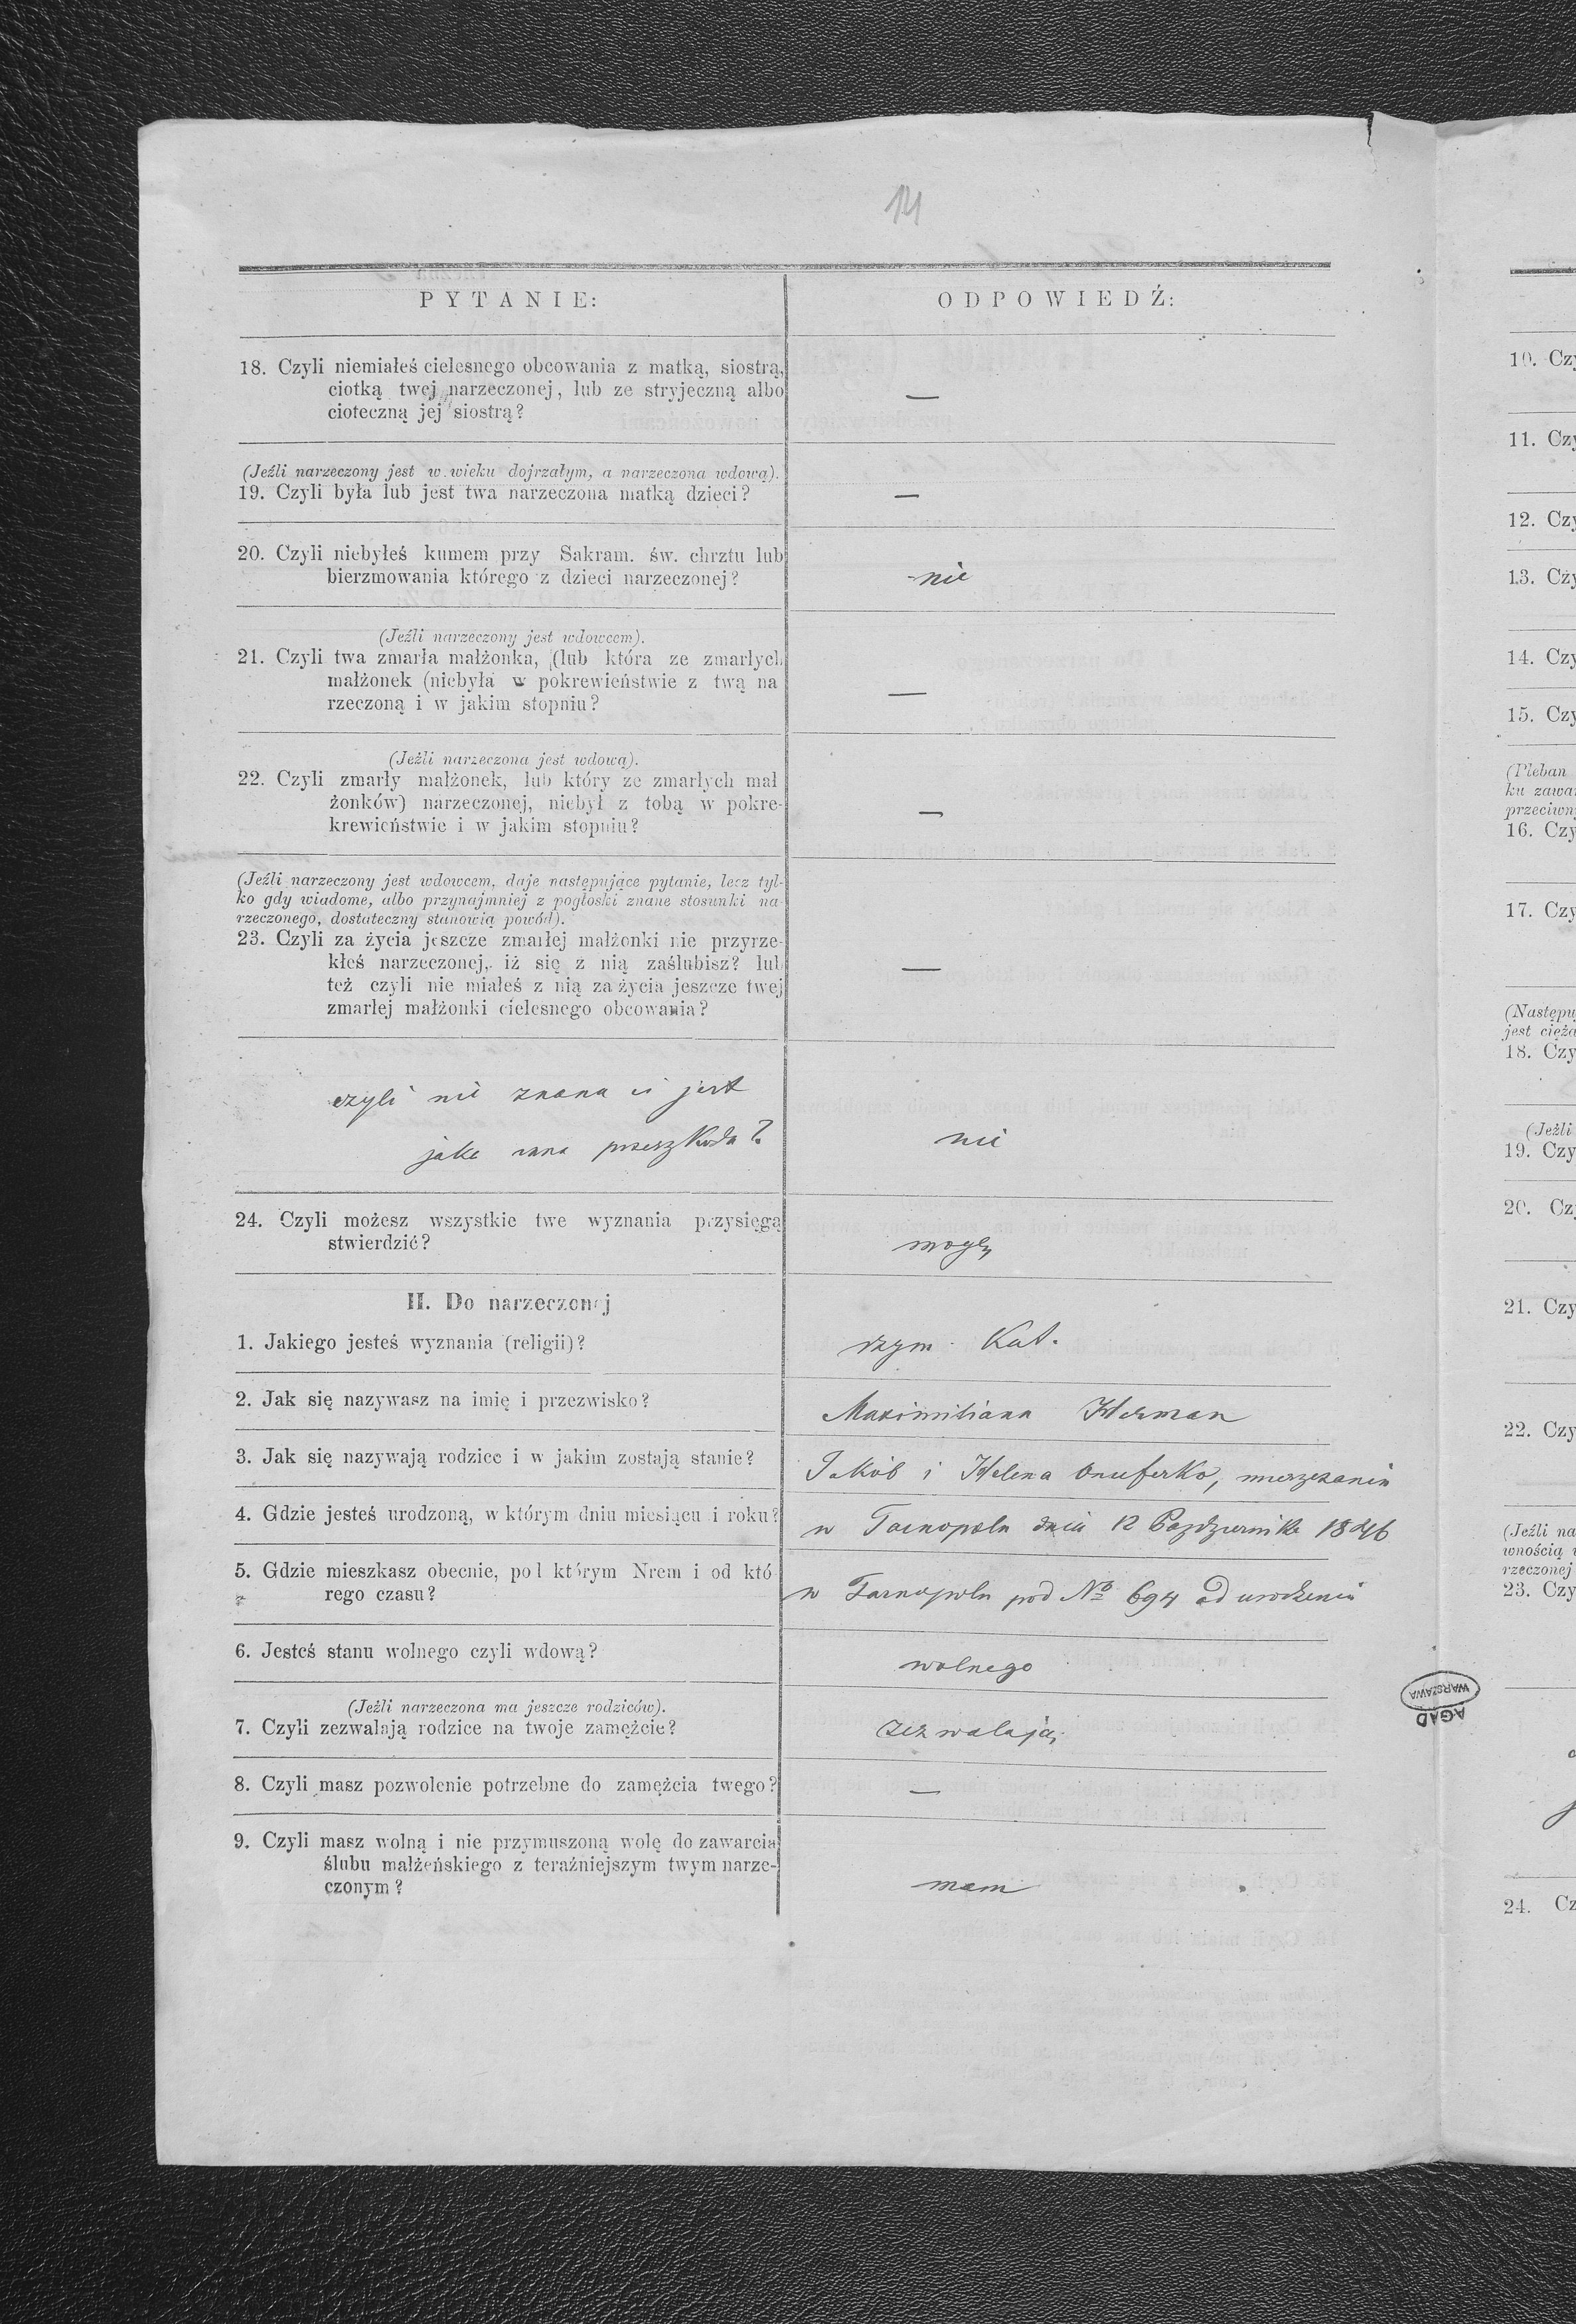 14
PYTANIE:
ODPOWIEDŹ:
18. Czyli niemiałeś cielesnego obcowania z matką, siostrą,
ciotką twej narzeczonej, lub ze stryjeczną albo
cioteczną jej siostrą?
—
(Jeźli narzeczony jest w wieku dojrzałym, a narzeczona wdową).
19. Czyli była lub jest twa narzeczona matką dzieci?
—
20. Czyli niebyłeś kumem przy Sakram. św. chrztu lub
bierzmowania którego z dzieci narzeczonej?
nie
(Jeźli narzeczony jest wdowcem).
21. Czyli twa zmarła małżonka, (lub która ze zmarłych
małżonek (niebyła w pokrewieństwie z twą na
rzeczoną i w jakim stopniu?
—
(Jeźli narzeczona jest wdową).
22. Czyli zmarły małżonek, lub który ze zmarłych mał
żonków) narzeczonej, niebył z tobą w pokre-
krewieństwie i w jakim stopniu?
—
(Jeźli narzeczony jest wdowcem, daje następujące pytanie, lecz tyl-
ko gdy wiadome, albo przynajmniej z pogłoski znane stosunki na-
rzeczonego, dostateczny stanowią powód).
23. Czyli za życia jeszcze zmarłej małżonki nie przyrze-
kłeś narzeczonej, iż się z nią zaślubisz? lub
też czyli nie miałeś z nią za życia jeszcze twej
zmarłej małżonki cielesnego obcowania?
—
czyli nie znana ci jest
jaka inna przeszkoda?
nie
24. Czyli możesz wszystkie twe wyznania przysięgą
stwierdzić?
mogę
II. Do narzeczonej
1. Jakiego jesteś wyznania (religii)?
rzym. Kat.
2. Jak się nazywasz na imię i przezwisko?
Maximiliana Herman
3. Jak się nazywają rodzice i w jakim zostają stanie?
Jakób i Helena Onuferko, mieszczanie
4. Gdzie jesteś urodzoną, w którym dniu miesiącu i roku?
w Tarnopolu dnia 12 Pazdziernika 1846
5. Gdzie mieszkasz obecnie, pod którym Nrem i od któ
rego czasu?
w Tarnopolu pod No 694 od urodzenia
6. Jesteś stanu wolnego czyli wdową?
wolnego
(Jeźli narzeczona ma jeszcze rodziców).
7. Czyli zezwalają rodzice na twoje zamężcie?
zezwalają
8. Czyli masz pozwolenie potrzebne do zamężcia twego?
—
9. Czyli masz wolną i nie przymuszoną wolę do zawarcia
ślubu małżeńskiego z teraźniejszym twym narze-
czonym?
mam
AGAD
WARSZAWA
10. Czy
11. Czy
12. Czy
13. Czy
14. Czy
15. Czy
(Pleban
ku zawar
przeciwn
16. Czy
17. Czy
(Następu
jest cięża
18. Czy
(Jeźli
19. Czy
20. Cz
21. Czy
22. Czy
(Jeźli na
wnością
rzeczonej
23. Czy
24. Cz